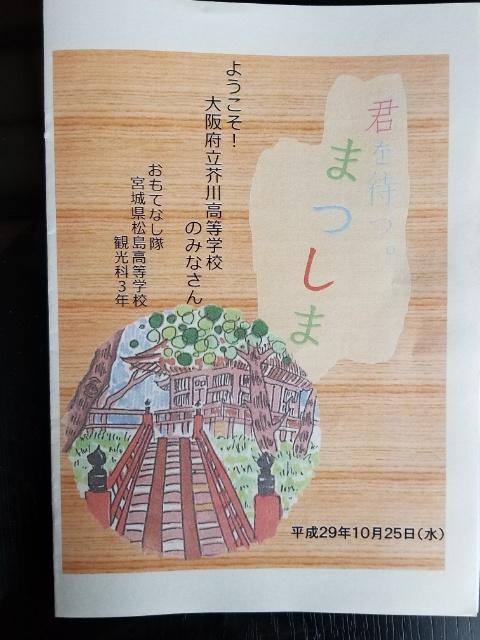 君を待つ。
まつしま
ようこそ！
大阪府立芥川高等学校
のみなさん
おもてなし隊
宮城県松島高等学校
観光科３年
平成29年10月25日(水)